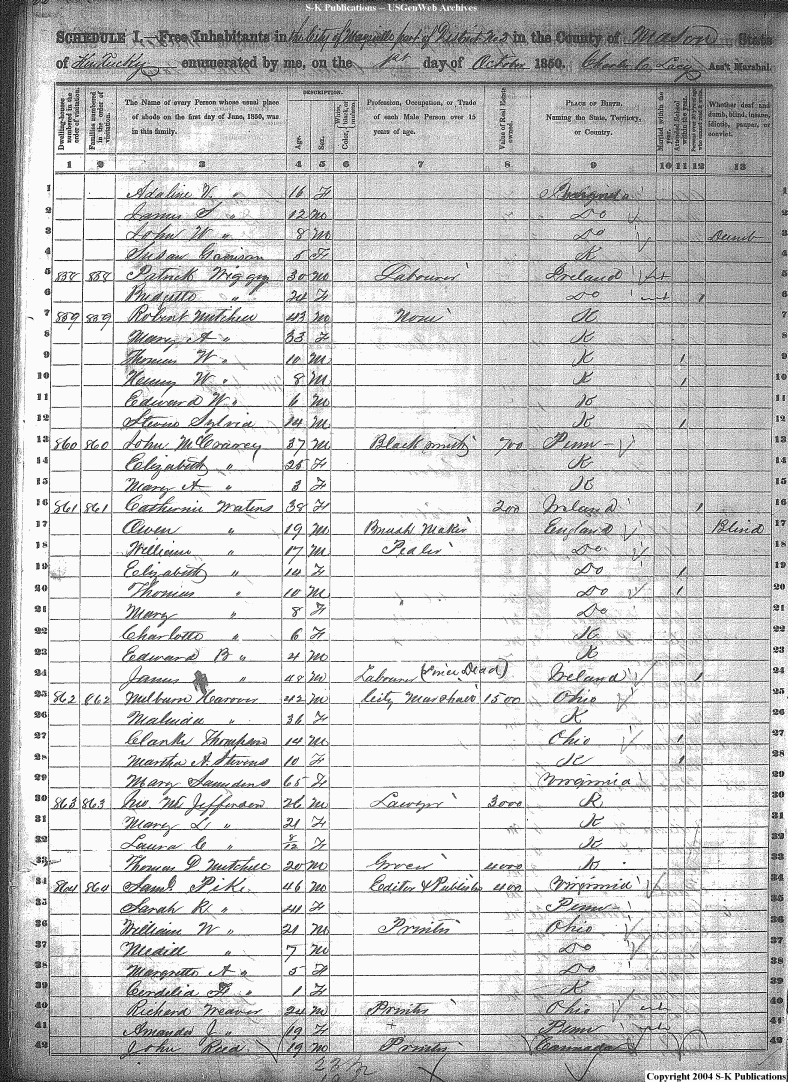 S-K Publications – USGenWeb Archives
SCHEDULE I.—Free Inhabitants in the City of Maysville part of District No 2 in the County of Mason State
of Kentucky enumerated by me, on the 1st day of October 1850. Charles C. Lacy Ass't Marshal.
Dwelling-houses numbered in the order of visitation. Families numbered in the order of visitation. The Name of every Person whose usual place of abode on the first day of June, 1850, was in this family. DESCRIPTION. Age. Sex. Color, White, black, or mulatto. Profession, Occupation, or Trade of each Male Person over 15 years of age. Value of Real Estate owned. PLACE OF BIRTH. Naming the State, Territory, or Country. Married within the year. Attended School within the year. Whether deaf and dumb, blind, insane, idiotic, pauper, or convict.
1 2 3 4 5 6 7 8 9 10 11 12 13
1 Adaline V. " 16 F 1
2 James S " 12 M Do 2
3 John W " 8 M Do Dumb 3
4 Susan Garrison 5 F K 4
5 858 858 Patrick 30 M Labourer Ireland 5
6 " 24 F Do 1 6
7 859 859 Robert Mitchell 43 M None K 7
8 Mary A " 33 F K 8
9 Thomas W " 10 M K 1 9
10 Henry W " 8 M K 1 10
11 Edward W " 6 M K 11
12 Sylvia 14 M K 1 12
13 860 860 John McCravey 37 M Black smith 700 Penn 13
14 Elizabeth " 25 F K 14
15 Mary A " 3 F K 15
16 861 861 Catherine Waters 38 F 200 Ireland 1 16
17 Owen " 19 M Brush Maker England Blind 17
18 William " 17 M Pedler Do 18
19 Elizabeth " 14 F Do 1 19
20 Thomas " 10 M " Do 1 20
21 Mary " 8 F Do 21
22 Charlotte " 6 F K 22
23 Edward B " 4 M K 23
24 James " 48 M Labourer (since Dead) Ireland 1 24
25 862 862 Milburn 42 M City Marshall 1500 Ohio 25
26 Malinda " 36 F K 26
27 Clark Thompson 14 M Ohio 1 27
28 Martha A. Stevens 10 F K 1 28
29 Mary Saunders 65 F Virginia 29
30 863 863 Jno. M. Jefferson 26 M Lawyer 3000 K 30
31 Mary L " 21 F K 31
32 Laura C " 8/12 F K 32
33 Thomas D Mitchell 20 M Grocer 4000 K 33
34 864 864 Saml. Pike 46 M Editor & Publisher 400 Virginia 34
35 Sarah R " 41 F Penn 35
36 William W " 21 M Printer Ohio 36
37 " 7 M Do 37
38 Margretta A " 5 F Do 38
39 Cordelia F " 1 F K 39
40 Richard Weaver 24 M Printer Ohio 40
41 Amanda J " 19 F Penn 41
42 John Reed 19 M Printer Cannada 42
Copyright 2004 S-K Publications